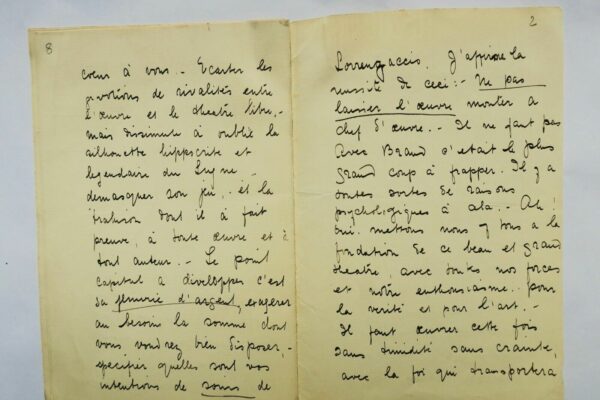 8
coeur à vous. - Ecarter les
questions de rivalités entre
l'œuvre et le theatre libre, -
mais dissimule à oublié la
silhouette hippocrite et
legendaire du Lugne -
demasquer son jeu, - et la
trahison dont il à fait
preuve, à toute œuvre et à
tout auteur. - Le point
capital a développer c'est
sa pénurie d'argent, exagerer
au besoin la somme dont
vous voudrez bien disposer, -
specifier quelles sont vos
intentions de sours de
2
Lorrenzaccio. J'approuve la
reussite de ceci : - Ne pas
laisser l'œuvre monter a
chef d'œuvre. - Il ne faut pas
Avec Brand c'etait le plus
grand coup à frapper. Il y a
toutes sortes de raisons
psychologiques à cela. - Ah !
oui. mettons nous y tous a la
fondation de ce beau et grand
theatre, avec toutes nos forces
et notre enthousiasme. pour
la verité et pour l'art. -
Il faut œuvrer cette fois
sans timidité sans crainte,
avec la foi qui transportera